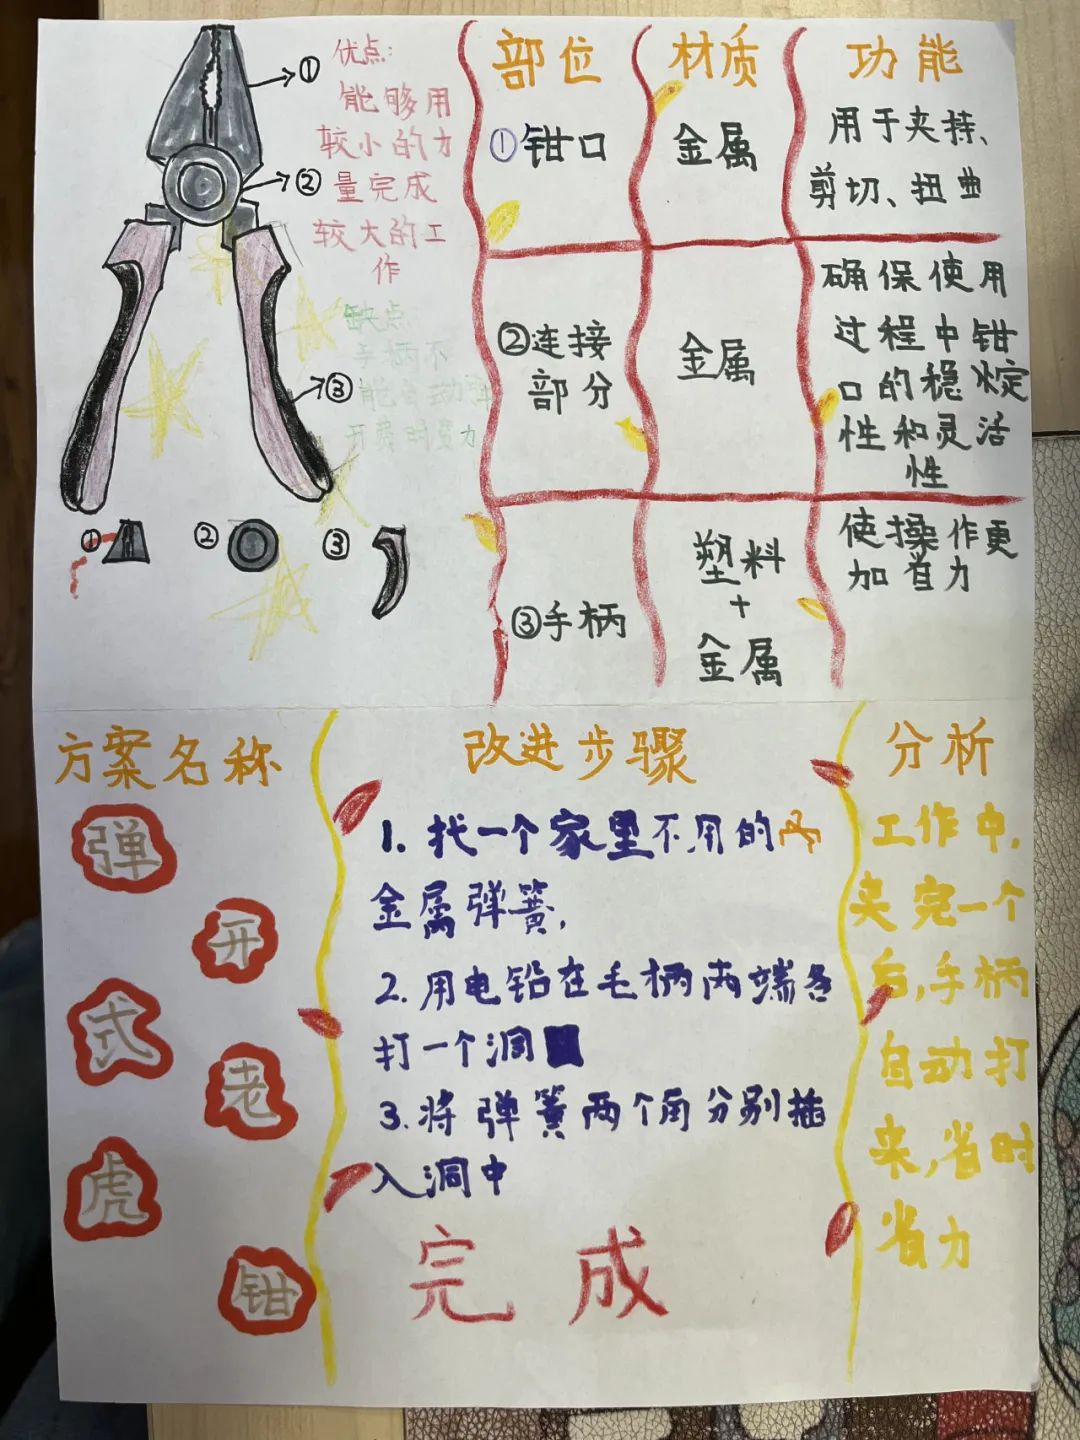 ①
②
③
优点:
能够用
较小的力
量完成
较大的工
作
缺点
手柄不
能自动弹
开费时费力
①
②
③
部位 材质 功能
①钳口 金属 用于夹持、
剪切、扭曲
②连接
部分
金属
确保使用
过程中钳
口的稳定
性和灵活
性
③手柄
塑料
+
金属
使操作更
加省力
方案名称
弹
开
式
老
虎
钳
改进步骤
1. 找一个家里不用的
金属弹簧,
2. 用电铅在毛柄两端各
打一个洞
3. 将弹簧两个角分别插
入洞中
完成
分析
工作中,
夹完一个
后,手柄
自动打
来,省时
省力